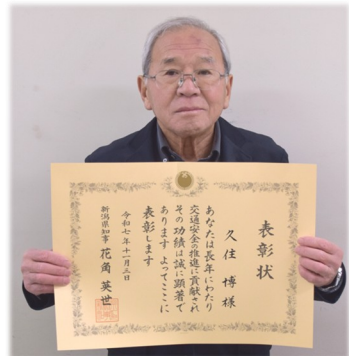 表彰状
久住 博 様
あなたは長年にわたり
交通安全の推進に貢献され
その功績は誠に顕著で
あります よってここに
表彰します
令和七年十一月三日
新潟県知事 花角英世